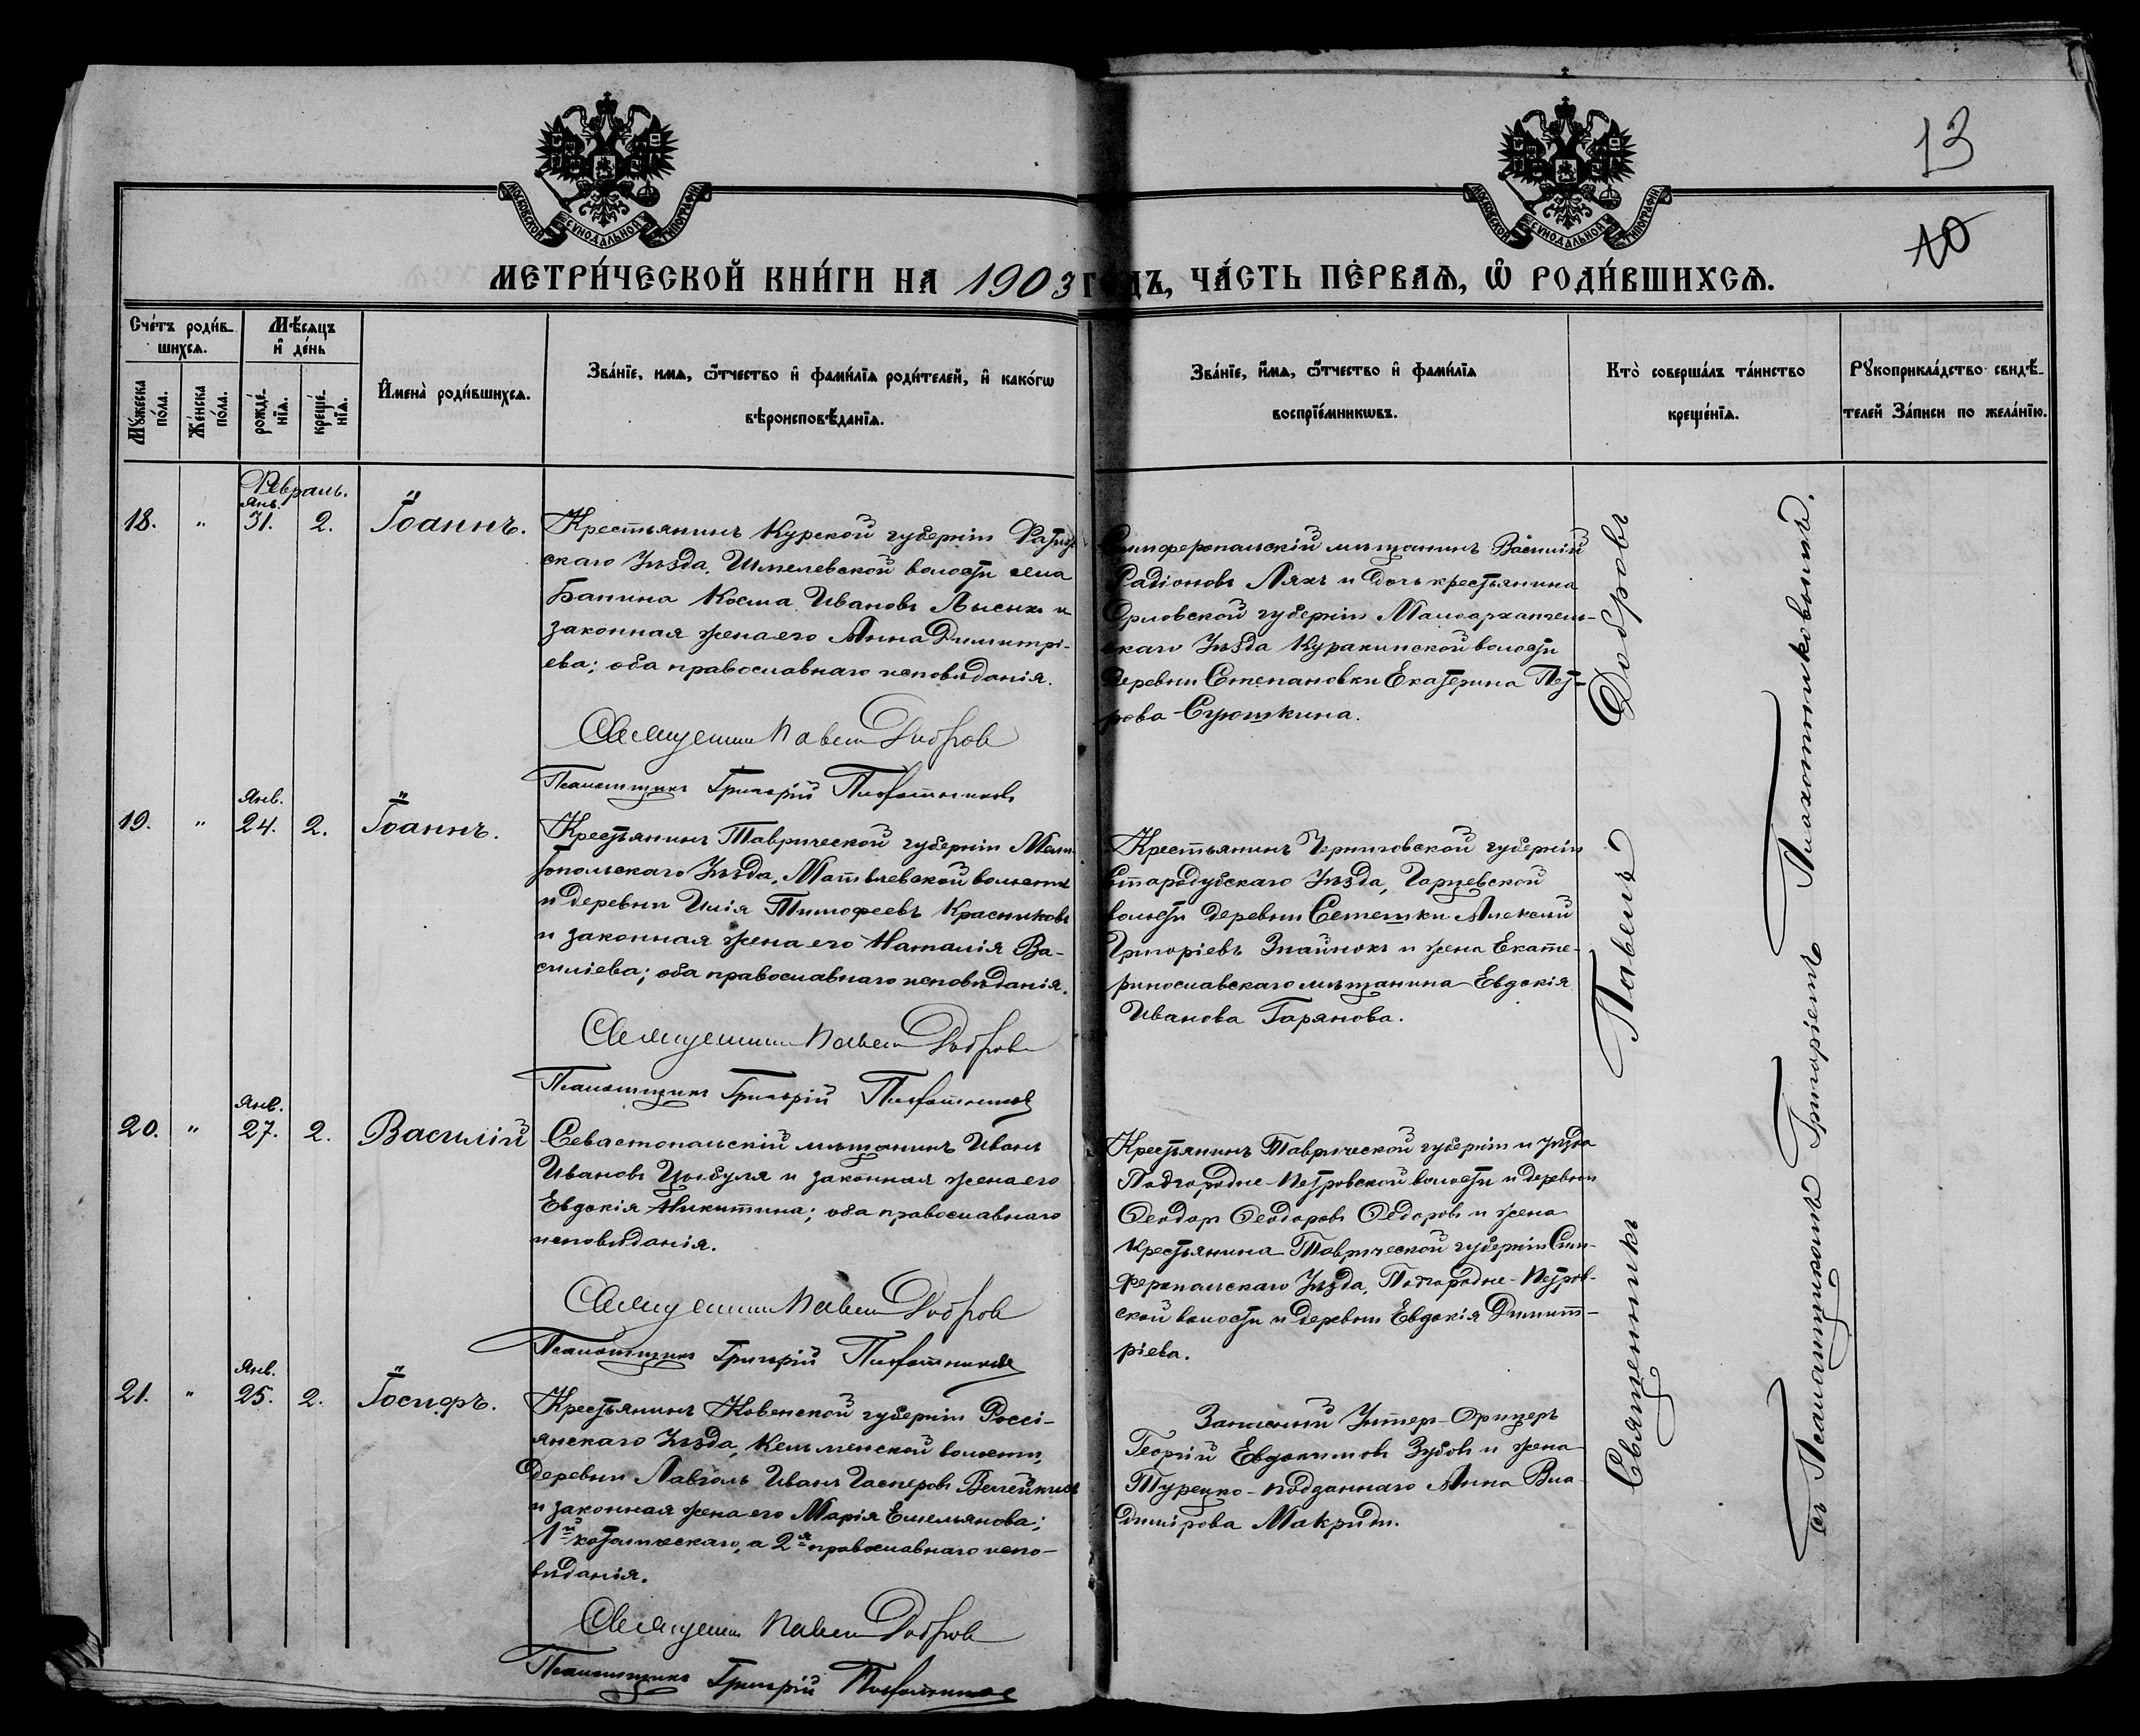 13
10
МОСКОВСКОЙ СѴНОДАЛЬНОЙ ТИПОГРАФІИ
МОСКОВСКОЙ СѴНОДАЛЬНОЙ ТИПОГРАФІИ
МЕТРИ́ЧЕСКОЙ КНИ́ГИ НА 1903 ГОДЪ, ЧА́СТЬ ПЕ́РВАѦ, Ѡ҆ РОДИ́ВШИХСѦ.
Сче́тъ роди́в-
шихсѧ.
Мѣ́сѧцъ
и҆ де́нь
Мꙋ́жеска
по́ла.
Же́нска
по́ла.
рожде́-
нїѧ.
креще́-
нїѧ.
И҆мена̀ роди́вшихсѧ.
Зва́нїе, имѧ, ѻ҆́тчество и҆ фами́лїѧ роди́телей, и҆ како́гѡ
вѣроисповѣ́данїѧ.
Зва́нїе, и҆́мѧ, ѻ҆́тчество и҆ фами́лїѧ
воспрїе́мникѡвъ.
Кто̀ соверша́лъ та́инство
креще́нїѧ.
Рꙋкоприкла́дство свидѣ́-
телей за́писи по жела́нїю.
Февраль.
Янв.
18. " 31. 2. Іоаннъ.
Крестьянинъ Курской губерніи
скаго Уѣзда, Шмелевской волости села
Банина Косма Ивановъ Лысенко и
законная жена его Анна Димитрі-
ева; оба православнаго исповѣданія.
Священникъ Павелъ Добровъ
Псаломщикъ Григорій Плахотниковъ
Симферопольскій мѣщанинъ Василій
Радіоновъ Ляхъ и дочь крестьянина
Орловской губерніи Малоархангель-
скаго Уѣзда Куракинской волости
деревни Степановки Екатерина Пет-
рова Сурюшкина.
Янв.
19. " 24. 2. Іоаннъ.
Крестьянинъ Таврической губерніи Мели-
топольскаго Уѣзда, Матвѣевской волости
и деревни Илія Тимофеевъ Красниковъ
и законная жена его Наталія Ва-
силіева; оба православнаго исповѣданія.
Священникъ Павелъ Добровъ
Псаломщикъ Григорій Плахотниковъ
Крестьянинъ Черниговской губерніи
Стародубскаго Уѣзда, Гарцевской
волости деревни Алексій
Григоріевъ и жена Екате-
ринославскаго мѣщанина Евдокія
Иванова Гарянова.
Янв.
20. " 27. 2. Василій
Севастопольскій мѣщанинъ Иванъ
Ивановъ Цыбуля и законная жена его
Евдокія Никитина; оба православнаго
исповѣданія.
Священникъ Павелъ Добровъ
Псаломщикъ Григорій Плахотниковъ
Крестьянинъ Таврической губерніи и уѣзда
Подгородне-Петровской волости и деревни
Ѳеодоръ Ѳеодоровъ Ѳедоровъ и жена
крестьянина Таврической губерніи Сим-
феропольскаго Уѣзда, Подгородне-Петров-
ской волости и деревни Евдокія Димит-
ріева.
Янв.
21. " 25. 2. Іосифъ.
Крестьянинъ Ковенской губерніи Россі-
янскаго Уѣзда, Кельменской волости,
деревни Иванъ Гасперовъ
и законная жена его Марія Емельянова;
1й католическаго, а 2я православнаго испо-
вѣданія.
Священникъ Павелъ Добровъ
Псаломщикъ Григорій Плахотниковъ
Запасный Унтеръ-Офицеръ
Георгій Евдокимовъ Зубовъ и жена
Турецко-подданнаго Анна Вла-
димірова Макриди.
Священникъ Павелъ Добровъ
съ Псаломщикомъ Григоріемъ Плахотниковымъ.